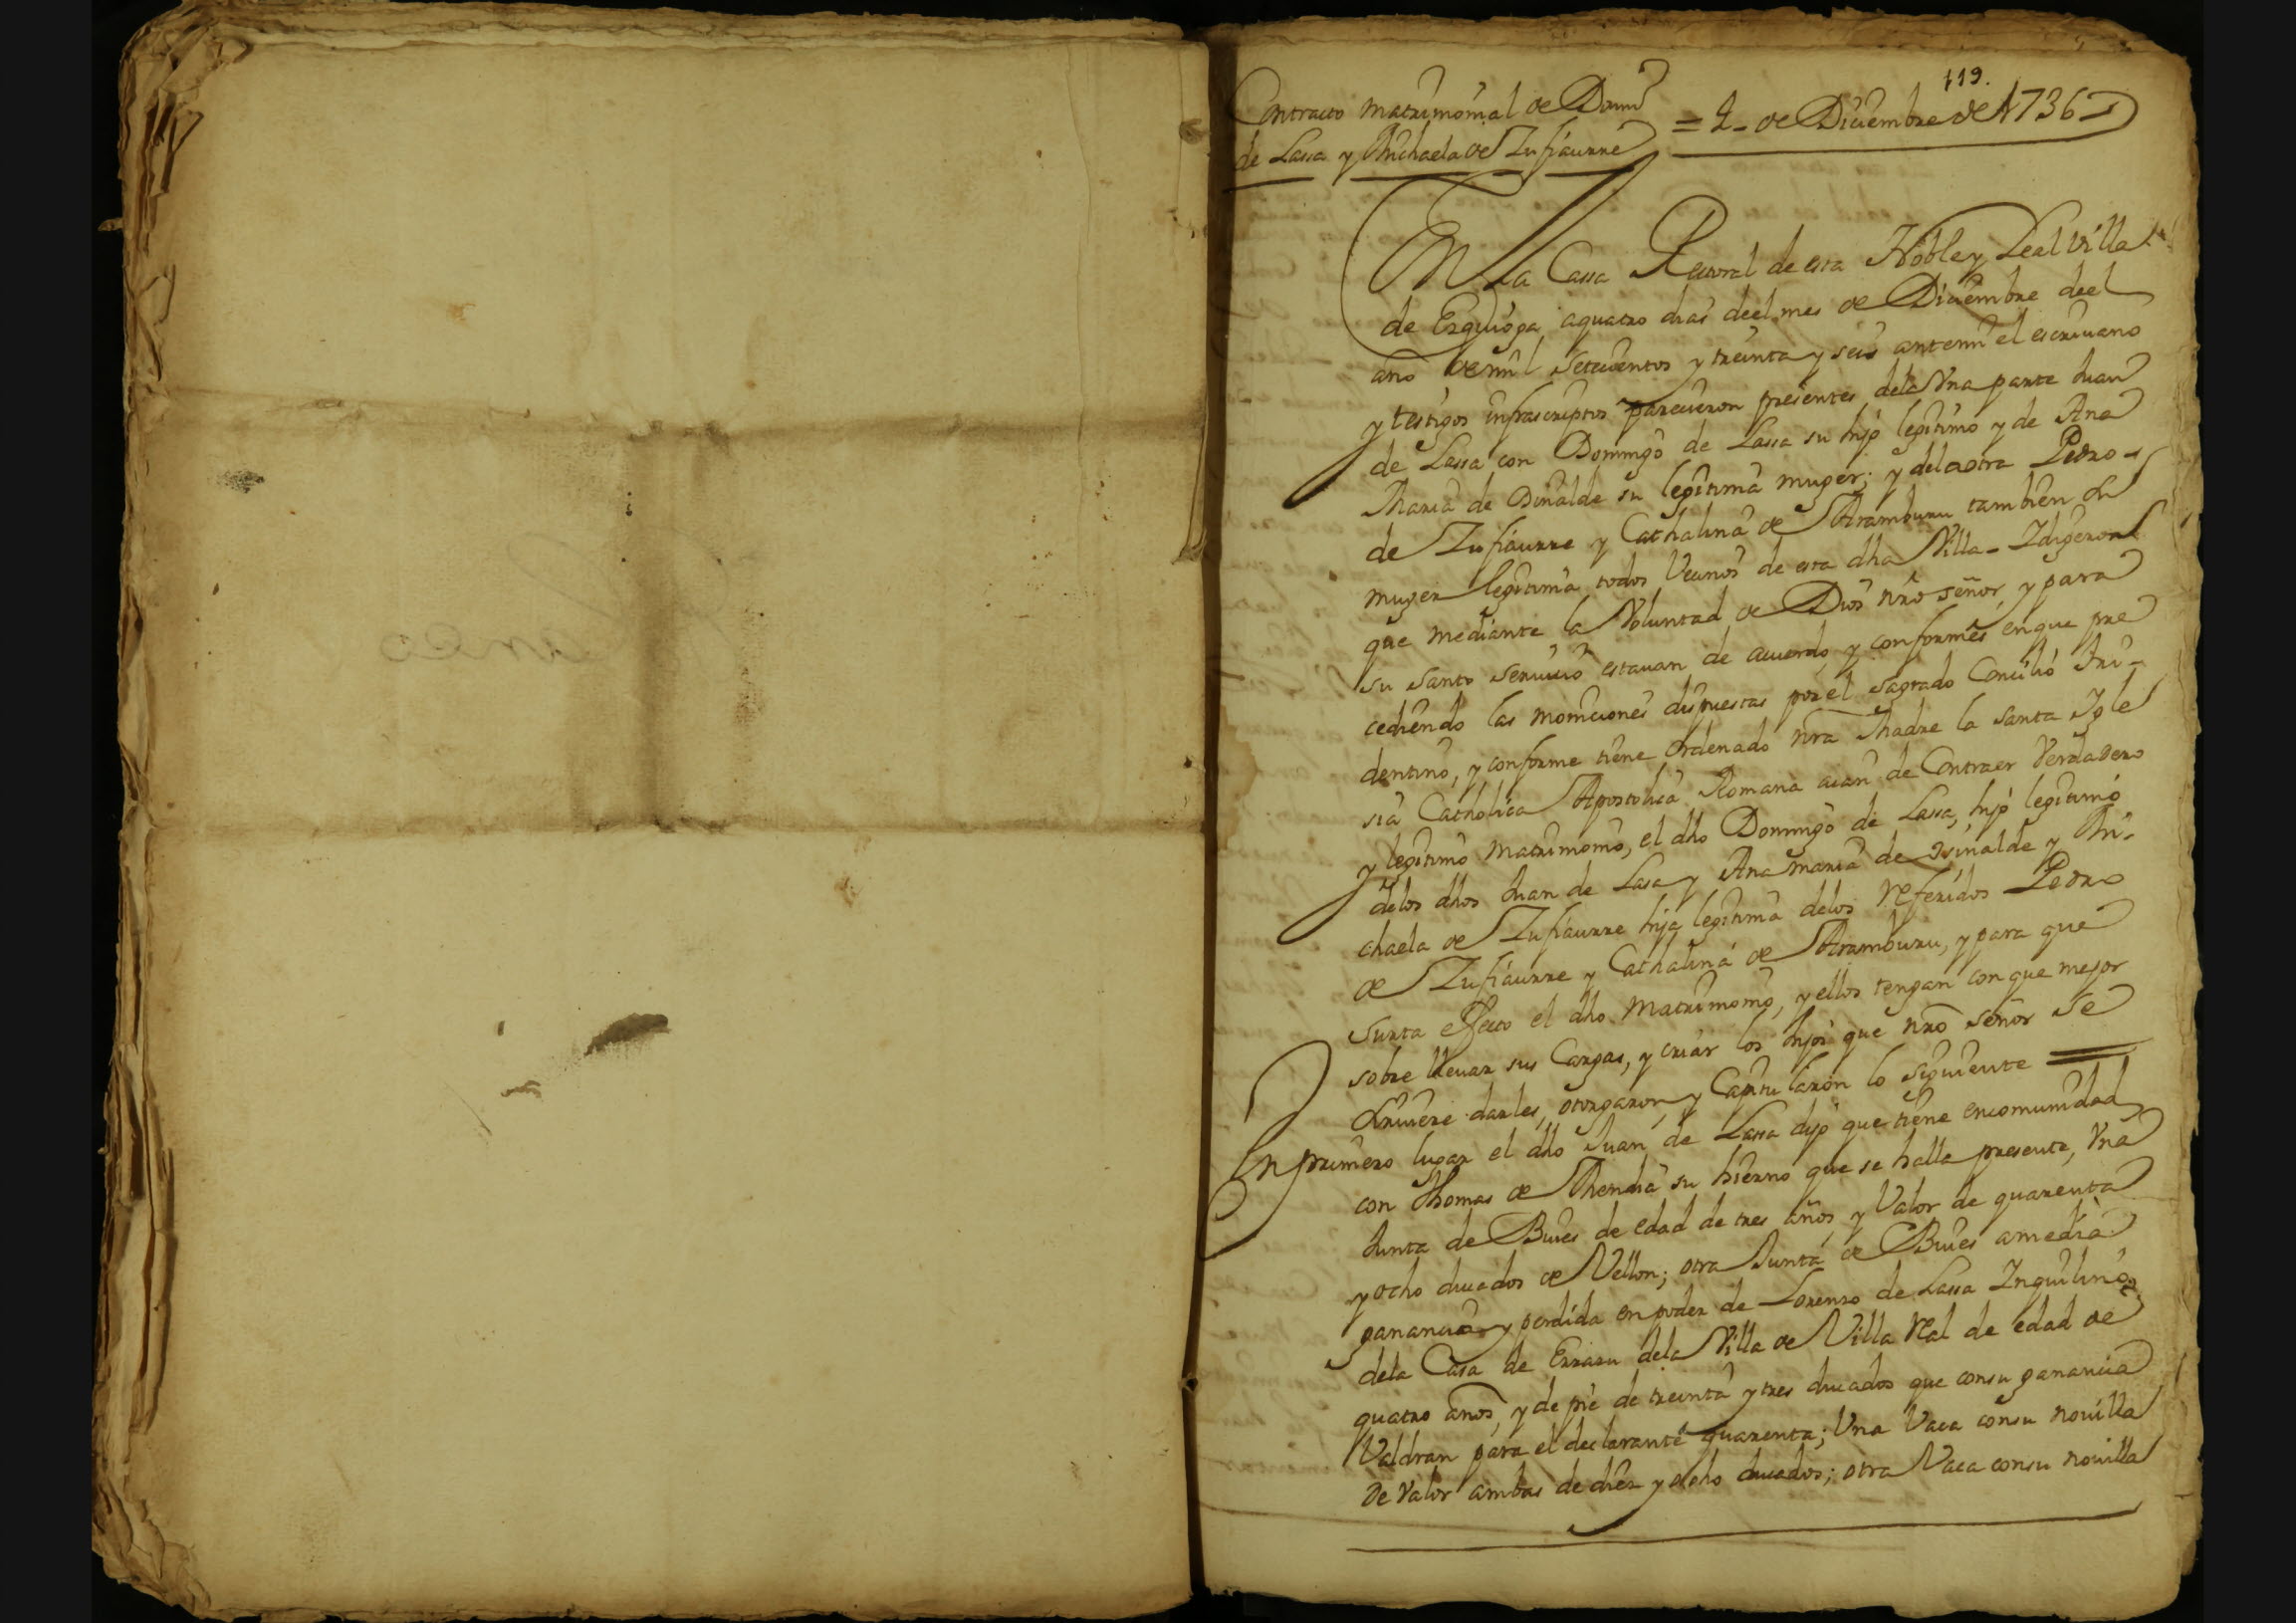 119.
Contracto matrimonial de Domᵒ
de Lassa y Michaela de Zufiaurre
= 4 - de Diciembre de 1736
En la Cassa Rectoral de esta Noble y Leal Villa
de Ezquioga, a quatro dias deel mes de Diciembre deel
año de mil Setecientos y treinta y seis antemi el escrivano
y testigos infrascriptos parecieron presentes, dela Vna parte Juan
de Lassa con Domingo de Lassa su hijo legitimo y de Ana
Maria de su legitima muger; y dela otra Pedro -
de Zufiaurre y Cathalina de Aramburu tambien su
muger legitima, todos Vecinos de esta dha Villa - Y digeron
que mediante la Voluntad de Dios nro señor, y para
su santo servicio estavan de acuerdo, y conformes en que pre
cediendo las moniciones dispuestas por el sagrado Concilio Tri-
dentino, y conforme tiene Ordenado nra Madre la santa Igle
sia Catholica Apostolica Romana aian de Contraer Verdadero
y legitimo matrimonio, el dho Domingo de Lassa, hijo legitimo
delos dhos Juan de Lasa y Ana maria de y Mi-
chaela de Zufiaurre hija legitima delos referidos Pedro
de Zufiaurre y Cathalina de Aramburu, y para que
surta effecto el dho matrimonio, y ellos tengan con que mejor
sobre llevar sus Cargas, y criar los hijos que nro señor se
sirviere darles, otorgaron, y Capitularon lo siguiente =
En primero lugar el dho Juan de Lassa dijo que tiene encomunidad
con Thomas de Mendia su hierno que se halla presente, Vna
Junta de Bueis de edad de tres años, y Valor de quarenta
y ocho ducados de Vellon; otra Junta de Bueis a media
ganancia y perdida en poder de Lorenzo de Lassa Inquilino
dela Casa de Errazu dela Villa de Villa Real de edad de
quatro años, y de pie de treinta y tres ducados que consu ganancia
Valdran para el declarante quarenta; Vna Vaca consu novilla
de Valor ambas de diez y ocho ducados; otra Vaca consu novilla